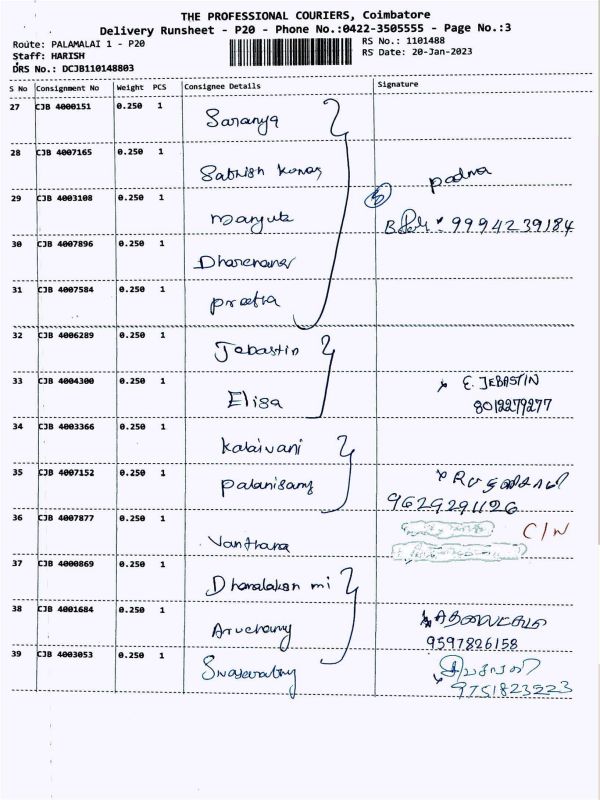 THE PROFESSIONAL COURIERS, Coimbatore
Delivery Runsheet - P20 - Phone No.:0422-3505555 - Page No.:3
Route: PALAMALAI 1 - P20
RS No.: 1101488
Staff: HARISH
RS Date: 20-Jan-2023
DRS No.: DCJB110148803
S No Consignment No Weight PCS Consignee Details Signature
27 CJB 4000151 0.250 1 Saranya
28 CJB 4007165 0.250 1
29 CJB 4003108 0.250 1 5 9994239184
30 CJB 4007896 0.250 1
31 CJB 4007584 0.250 1 preetha
32 CJB 4006289 0.250 1 Jebastin
33 CJB 4004300 0.250 1 Elisa E. JEBASTIN
8012279277
34 CJB 4003366 0.250 1 Kalaivani
35 CJB 4007152 0.250 1 palanisamy
9629291126
36 CJB 4007877 0.250 1 Vanthana C/N
37 CJB 4000869 0.250 1
38 CJB 4001684 0.250 1
9597826158
39 CJB 4003053 0.250 1
9751823223